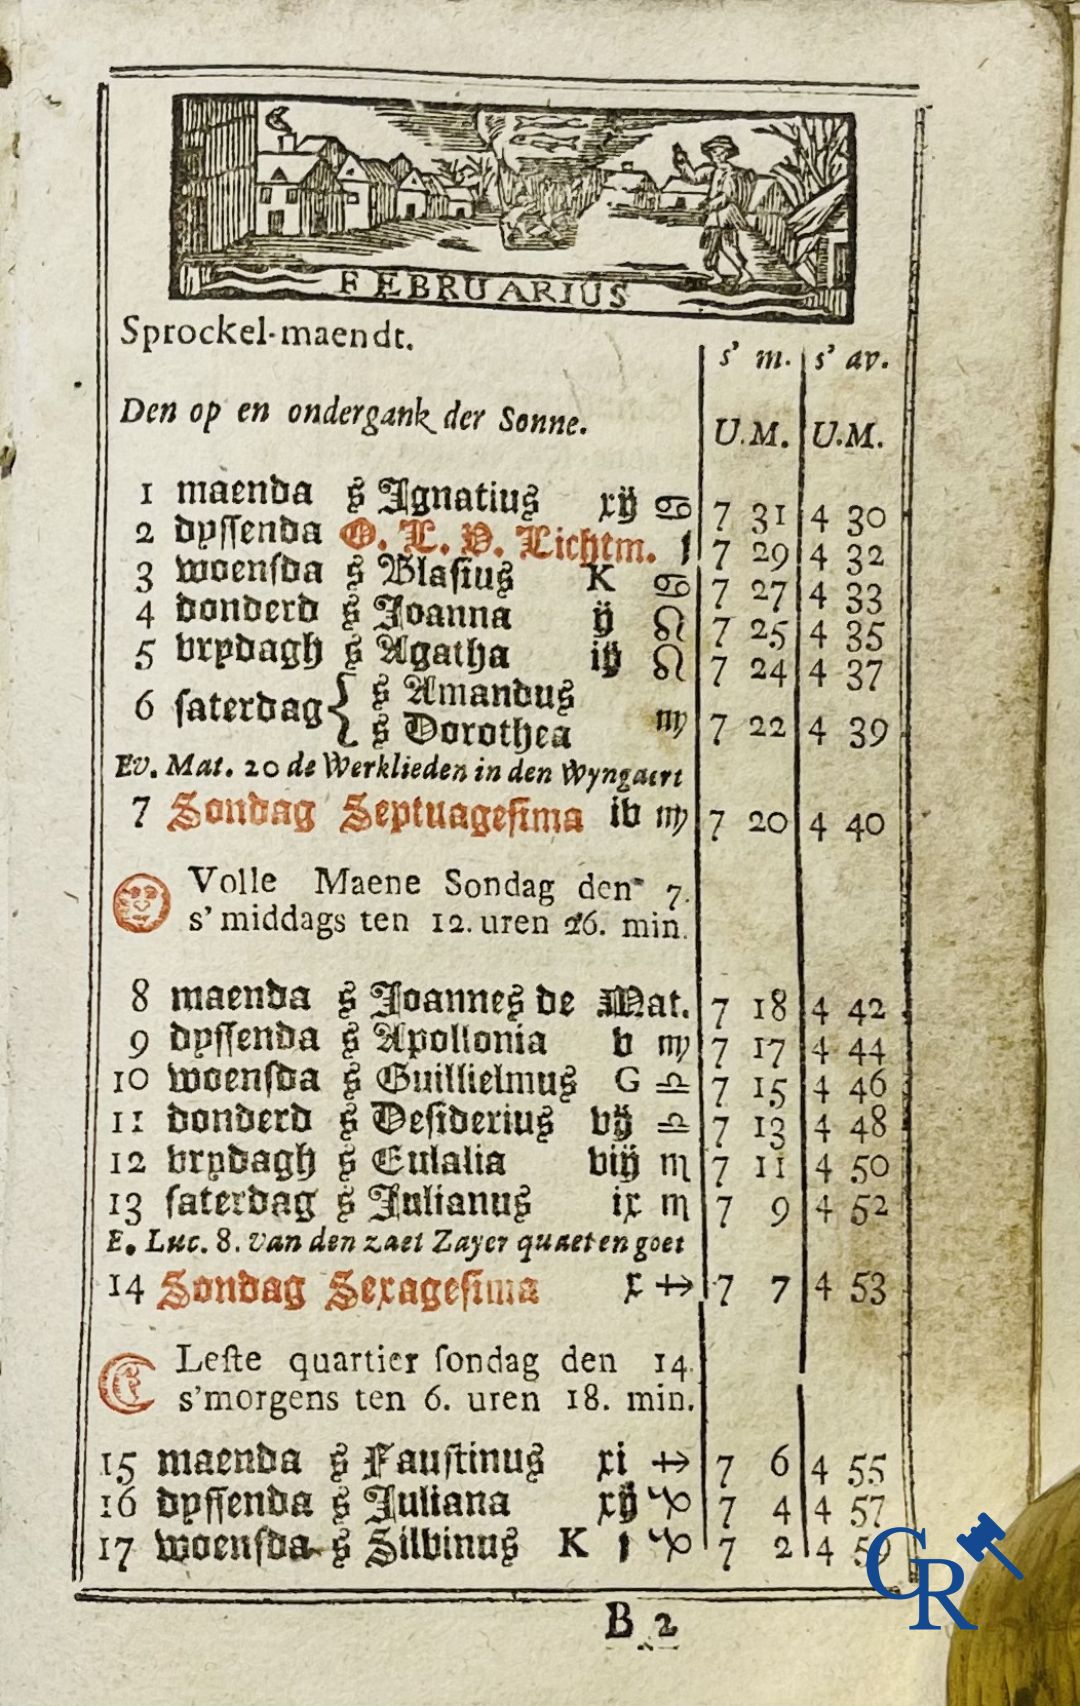 FEBRUARIUS
Sprockel-maendt.
s' m. s' av.
Den op en ondergank der Sonne. U.M. U.M.
1 maenda s Ignatius xij ♋ 7 31 4 30
2 dyssenda O. L. V. Lichtm. 1 7 29 4 32
3 woensda s Blasius K ♋ 7 27 4 33
4 donderd s Joanna ij ♌ 7 25 4 35
5 vrydagh s Agatha iij ♌ 7 24 4 37
6 saterdag { s Amandus
s Dorothea ♍ 7 22 4 39
Ev. Mat. 20 de Werklieden in den Wyngaert
7 Sondag Septuagesima iv ♍ 7 20 4 40
Volle Maene Sondag den 7.
s'middags ten 12. uren 26. min.
8 maenda s Joannes de Mat. 7 18 4 42
9 dyssenda s Apollonia v ♍ 7 17 4 44
10 woensda s Guillielmus G ♎ 7 15 4 46
11 donderd s Desiderius vij ♎ 7 13 4 48
12 vrydagh s Eulalia viij ♏ 7 11 4 50
13 saterdag s Julianus ix ♏ 7 9 4 52
E. Luc. 8. van den zaet Zayer quaet en goet
14 Sondag Sexagesima x ♐ 7 7 4 53
Leste quartier sondag den 14.
s'morgens ten 6. uren 18. min.
15 maenda s Faustinus xi ♐ 7 6 4 55
16 dyssenda s Juliana xij ♑ 7 4 4 57
17 woensda s Silvinus K 1 ♑ 7 2 4 59
B 2
CR